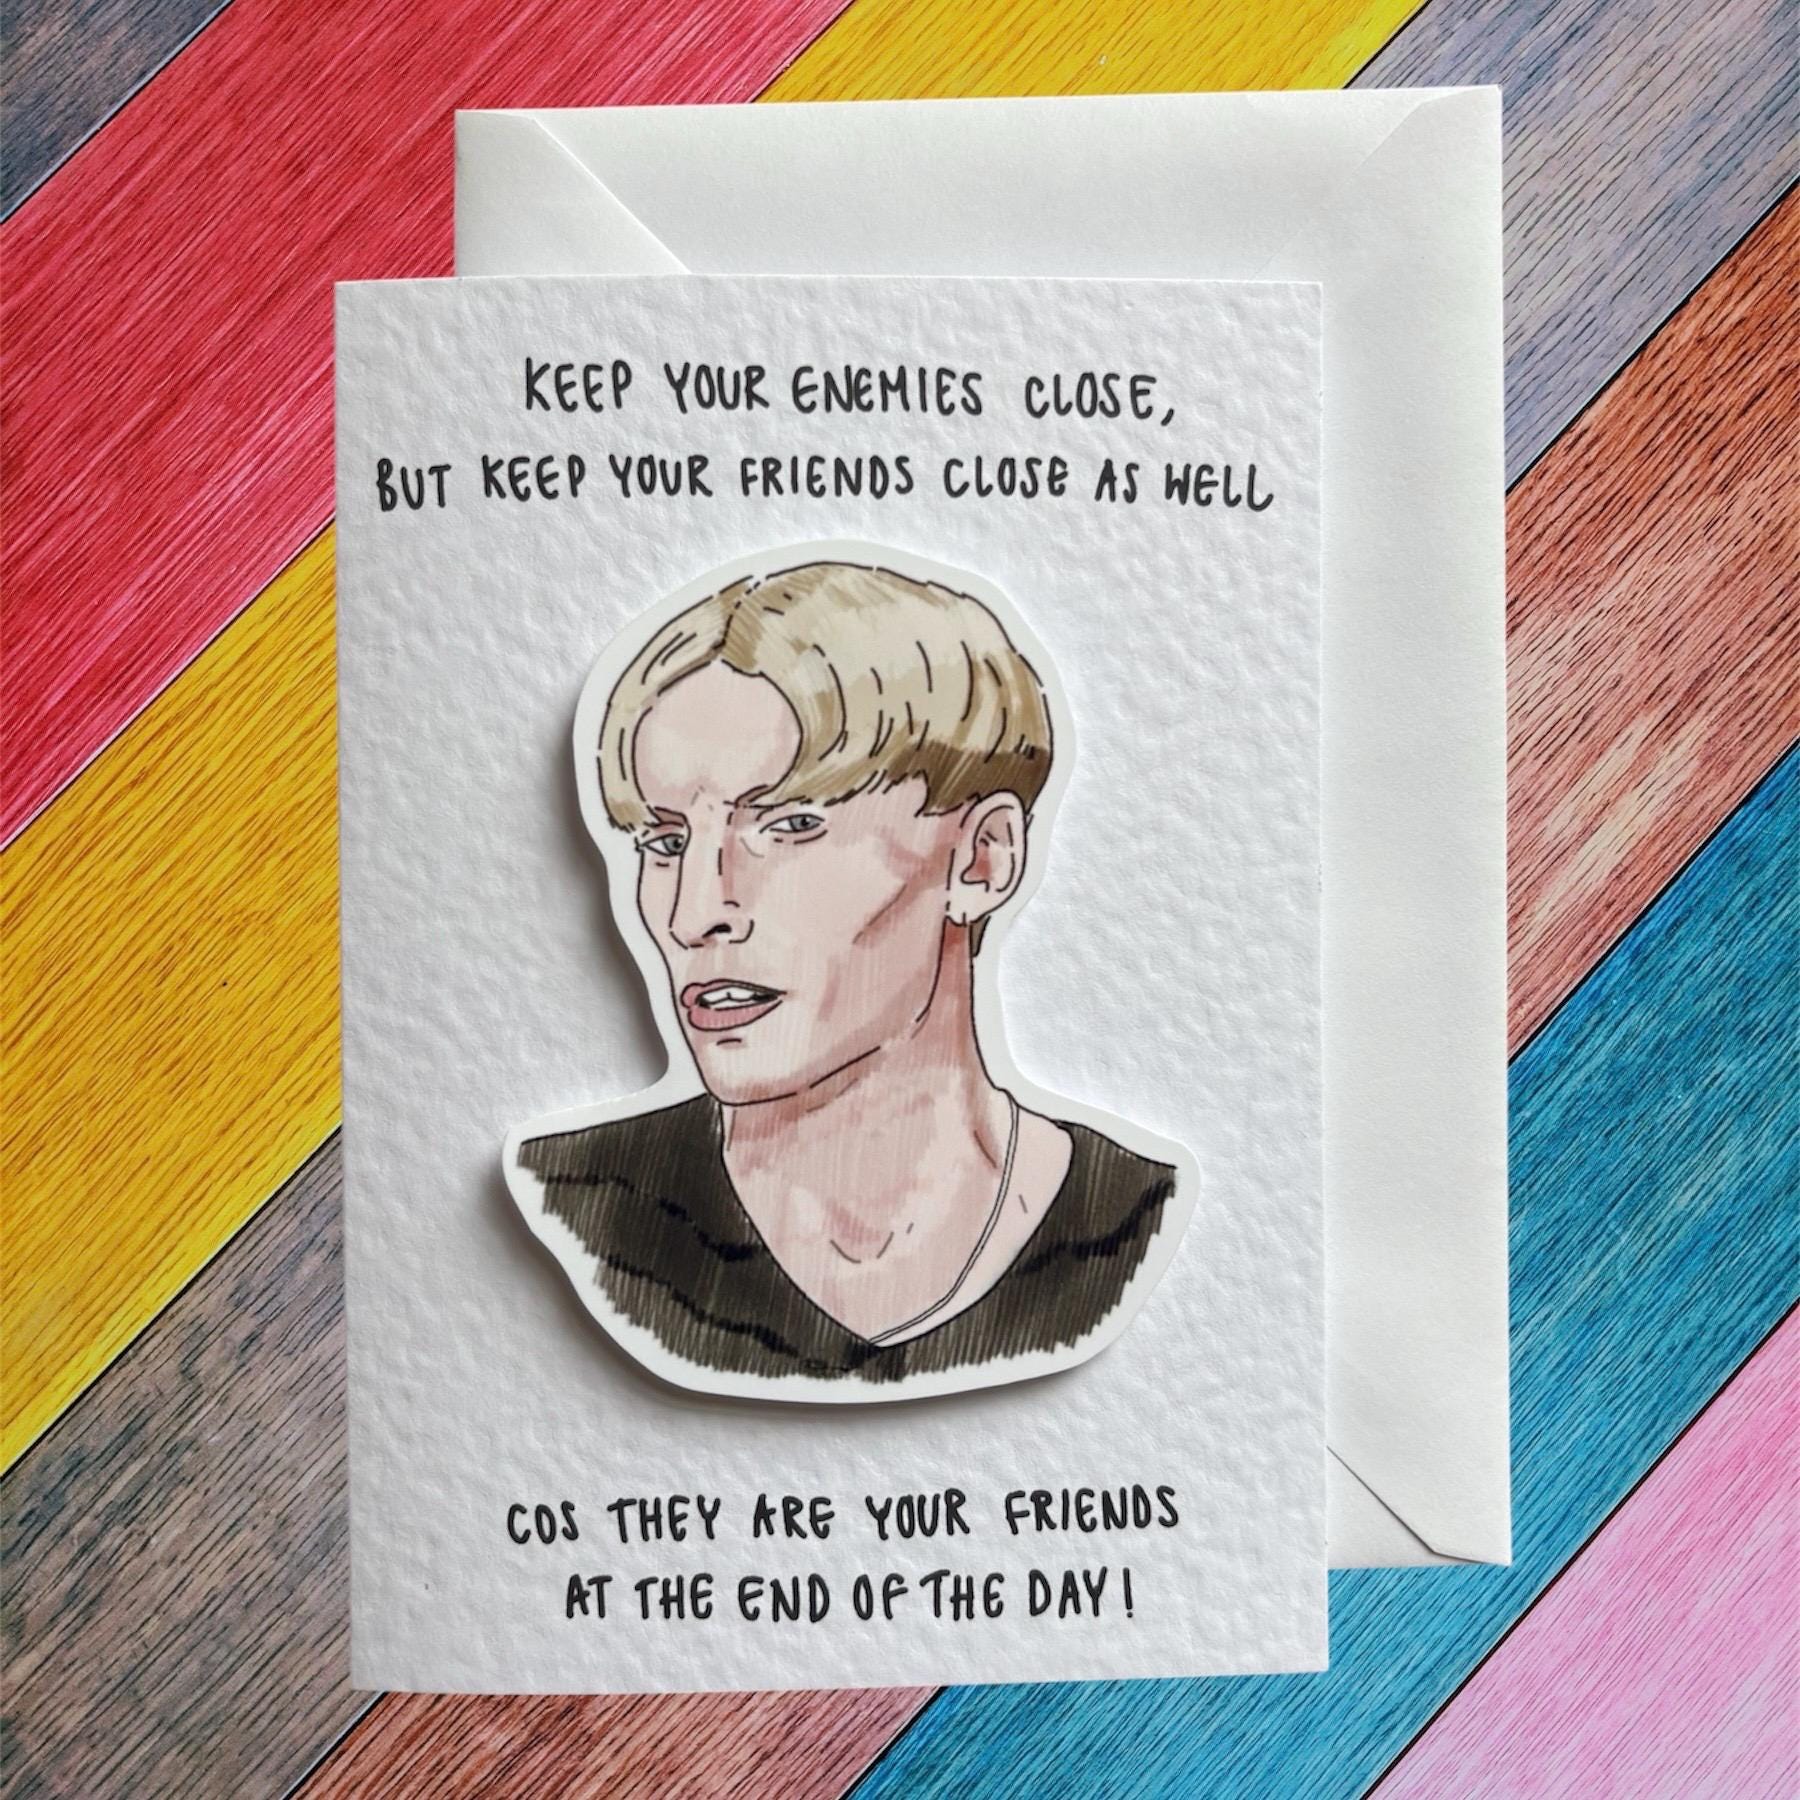 KEEP YOUR ENEMIES CLOSE,
BUT KEEP YOUR FRIENDS CLOSE AS WELL
COS THEY ARE YOUR FRIENDS
AT THE END OF THE DAY!